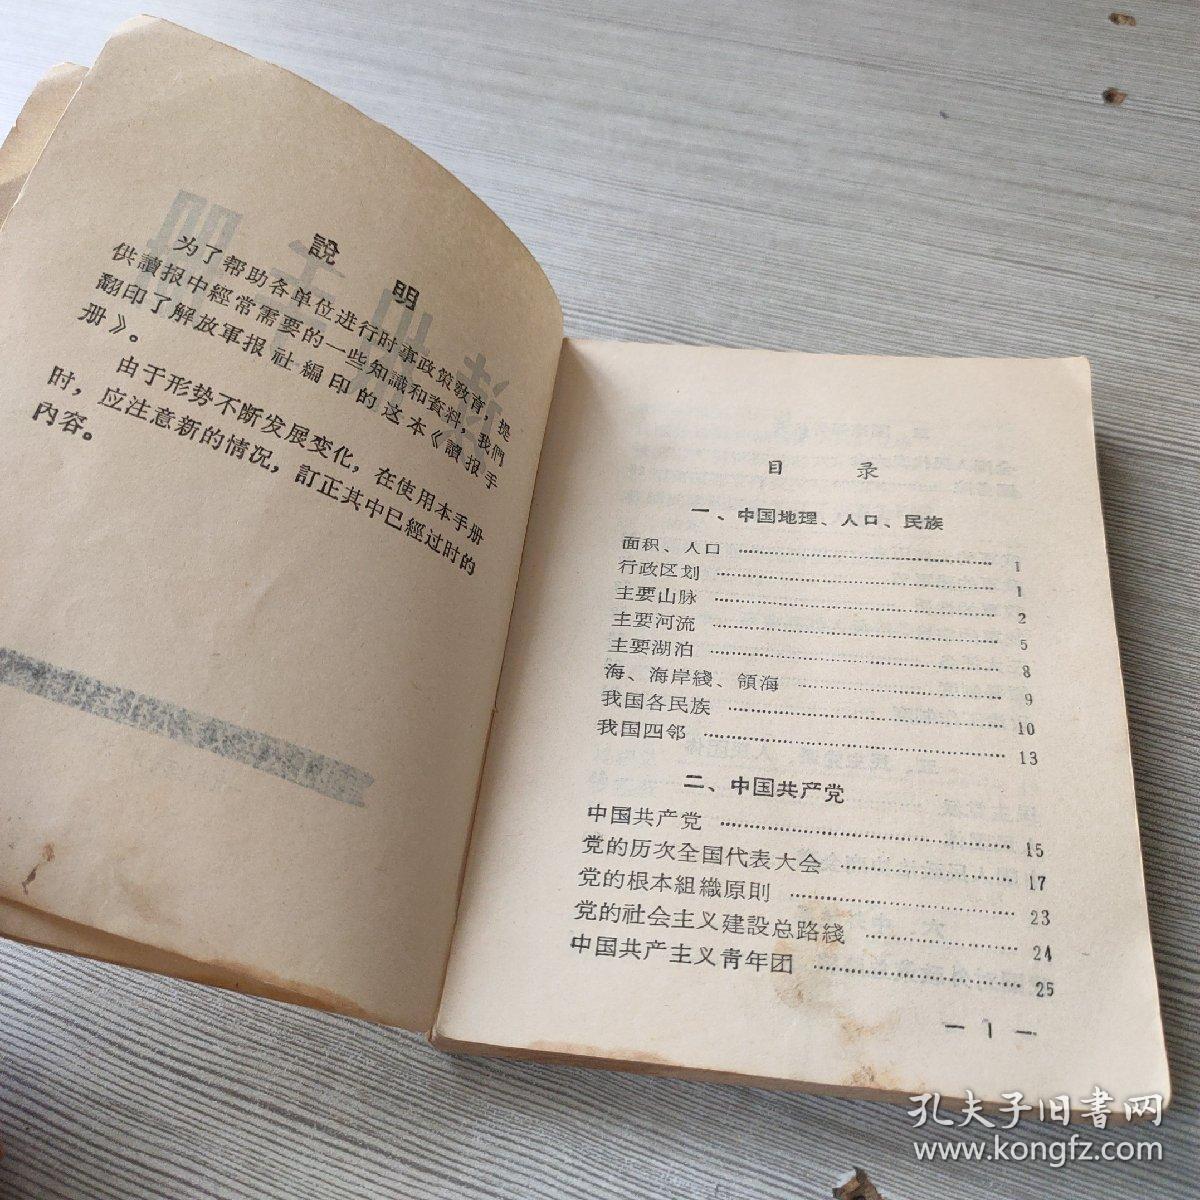 說　明
为了帮助各单位进行时事政策教育，提
供讀报中經常需要的一些知識和資料，我們
翻印了解放軍报社編印的这本《讀报手
册》。
由于形势不断发展变化，在使用本手册
时，应注意新的情况，訂正其中已經过时的
內容。
目　录
一、中国地理、人口、民族
面积、人口 …… 1
行政区划 …… 1
主要山脉 …… 2
主要河流 …… 5
主要湖泊 …… 8
海、海岸綫、領海 …… 9
我国各民族 …… 10
我国四邻 …… 13
二、中国共产党
中国共产党 …… 15
党的历次全国代表大会 …… 17
党的根本組織原則 …… 23
党的社会主义建設总路綫 …… 24
中国共产主义青年团 …… 25
— 1 —
孔夫子旧书网
www.kongfz.com